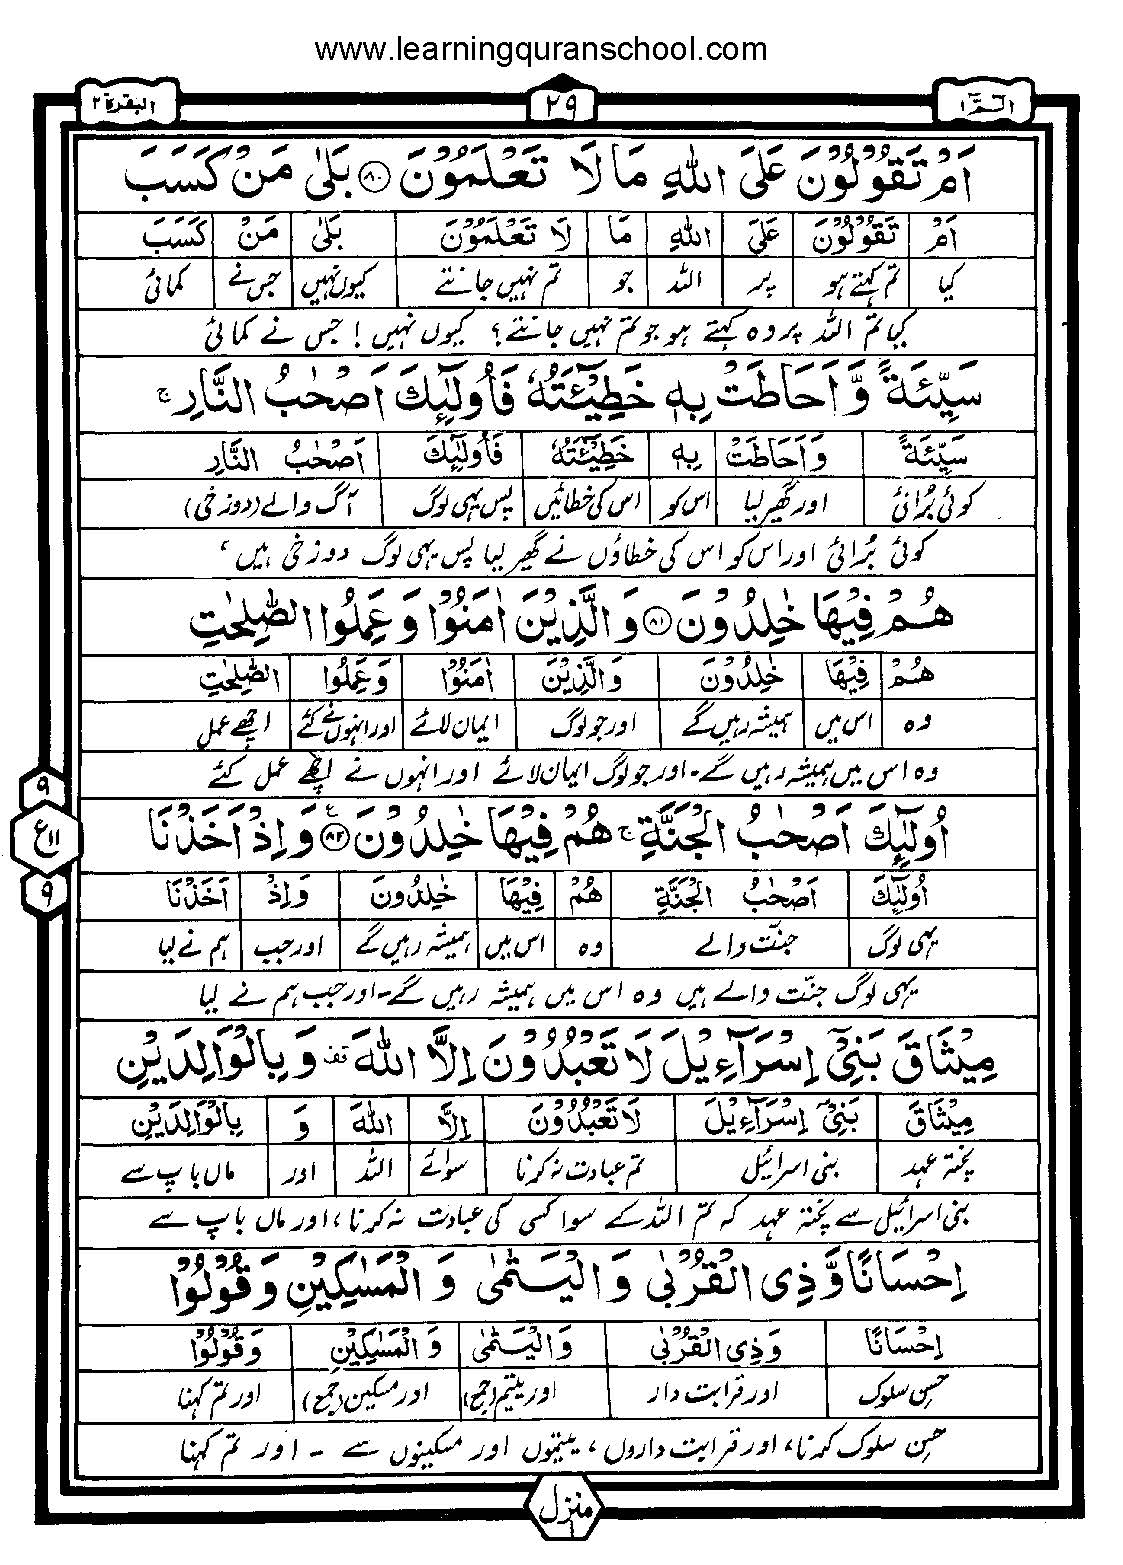 www.learningquranschool.com
البقرة ٢
٢٩
الٓمّٓ ١
اَمْ تَقُوْلُوْنَ عَلَى اللهِ مَا لَا تَعْلَمُوْنَ ﴿٨٠﴾ بَلٰى مَنْ كَسَبَ
اَمْ تَقُوْلُوْنَ عَلَى اللهِ مَا لَا تَعْلَمُوْنَ بَلٰى مَنْ كَسَبَ
کیا تم کہتے ہو پر اللہ جو تم نہیں جانتے کیوں نہیں جس نے کمائی
کیا تم اللہ پر وہ کہتے ہو جو تم نہیں جانتے؟ کیوں نہیں! جس نے کمائی
سَيِّئَةً وَّاَحَاطَتْ بِهٖ خَطِيْٓئَتُهٗ فَاُولٰٓئِكَ اَصْحٰبُ النَّارِ ۚ
سَيِّئَةً وَاَحَاطَتْ بِهٖ خَطِيْٓئَتُهٗ فَاُولٰٓئِكَ اَصْحٰبُ النَّارِ
کوئی بُرائی اور گھیر لیا اس کو اس کی خطائیں پس یہی لوگ آگ والے (دوزخی)
کوئی بُرائی اور اس کو اس کی خطاؤں نے گھیر لیا پس یہی لوگ دوزخی ہیں،
هُمْ فِيْهَا خٰلِدُوْنَ ﴿٨١﴾ وَالَّذِيْنَ اٰمَنُوْا وَعَمِلُوا الصّٰلِحٰتِ
هُمْ فِيْهَا خٰلِدُوْنَ وَالَّذِيْنَ اٰمَنُوْا وَعَمِلُوا الصّٰلِحٰتِ
وہ اس میں ہمیشہ رہیں گے اور جو لوگ ایمان لائے اور انہوں نے کئے اچھے عمل
وہ اس میں ہمیشہ رہیں گے۔ اور جو لوگ ایمان لائے اور انہوں نے اچھے عمل کئے
٩
ع ١١
٩
اُولٰٓئِكَ اَصْحٰبُ الْجَنَّةِ ۚ هُمْ فِيْهَا خٰلِدُوْنَ ﴿٨٢﴾ ع وَاِذْ اَخَذْنَا
اُولٰٓئِكَ اَصْحٰبُ الْجَنَّةِ هُمْ فِيْهَا خٰلِدُوْنَ وَاِذْ اَخَذْنَا
یہی لوگ جنّت والے وہ اس میں ہمیشہ رہیں گے اور جب ہم نے لیا
یہی لوگ جنّت والے ہیں وہ اس میں ہمیشہ رہیں گے۔ اور جب ہم نے لیا
مِيْثَاقَ بَنِيْٓ اِسْرَآءِيْلَ لَا تَعْبُدُوْنَ اِلَّا اللهَ قف وَبِالْوَالِدَيْنِ
مِيْثَاقَ بَنِيْٓ اِسْرَآءِيْلَ لَا تَعْبُدُوْنَ اِلَّا اللهَ وَ بِالْوَالِدَيْنِ
پختہ عہد بنی اسرائیل تم عبادت نہ کرنا سوائے اللہ اور ماں باپ سے
بنی اسرائیل سے پختہ عہد کہ تم اللہ کے سوا کسی کی عبادت نہ کرنا، اور ماں باپ سے
اِحْسَانًا وَّذِى الْقُرْبٰى وَالْيَتٰمٰى وَالْمَسٰكِيْنِ وَقُوْلُوْا
اِحْسَانًا وَذِى الْقُرْبٰى وَالْيَتٰمٰى وَالْمَسٰكِيْنِ وَقُوْلُوْا
حسنِ سلوک اور قرابت دار اور یتیم (جمع) اور مسکین (جمع) اور تم کہنا
حسنِ سلوک کرنا، اور قرابت داروں، یتیموں اور مسکینوں سے ۔ اور تم کہنا
منزل ١